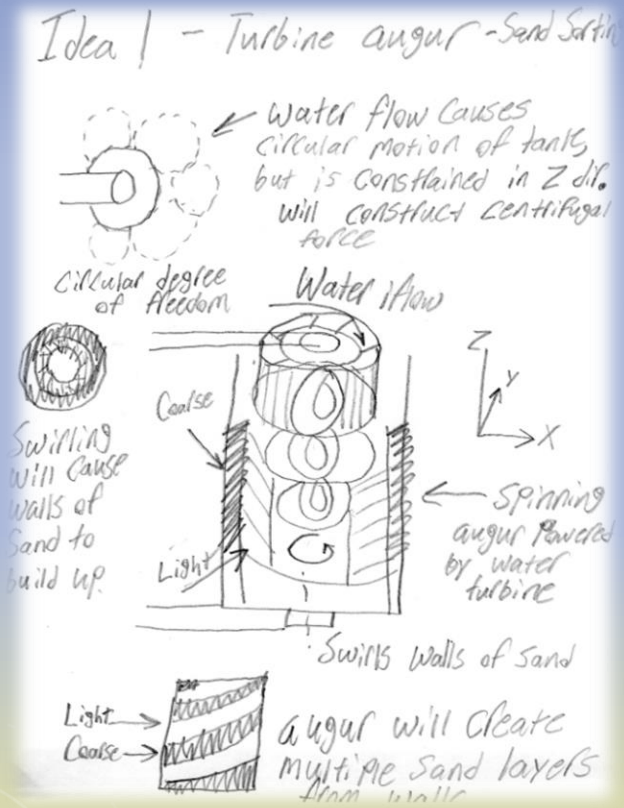 Idea 1 - Turbine augur - Sand Sortin
Water flow causes
circular motion of tank,
but is constrained in Z dir.
will construct centrifugal
force
circular degree
of freedom
Water flow
Z
Y
X
Coarse
Swirling
will cause
walls of
sand to
build up.
Light
Spinning
augur powered
by water
turbine
Swirls walls of sand
Light
Coarse
augur will create
multiple sand layers
from walls